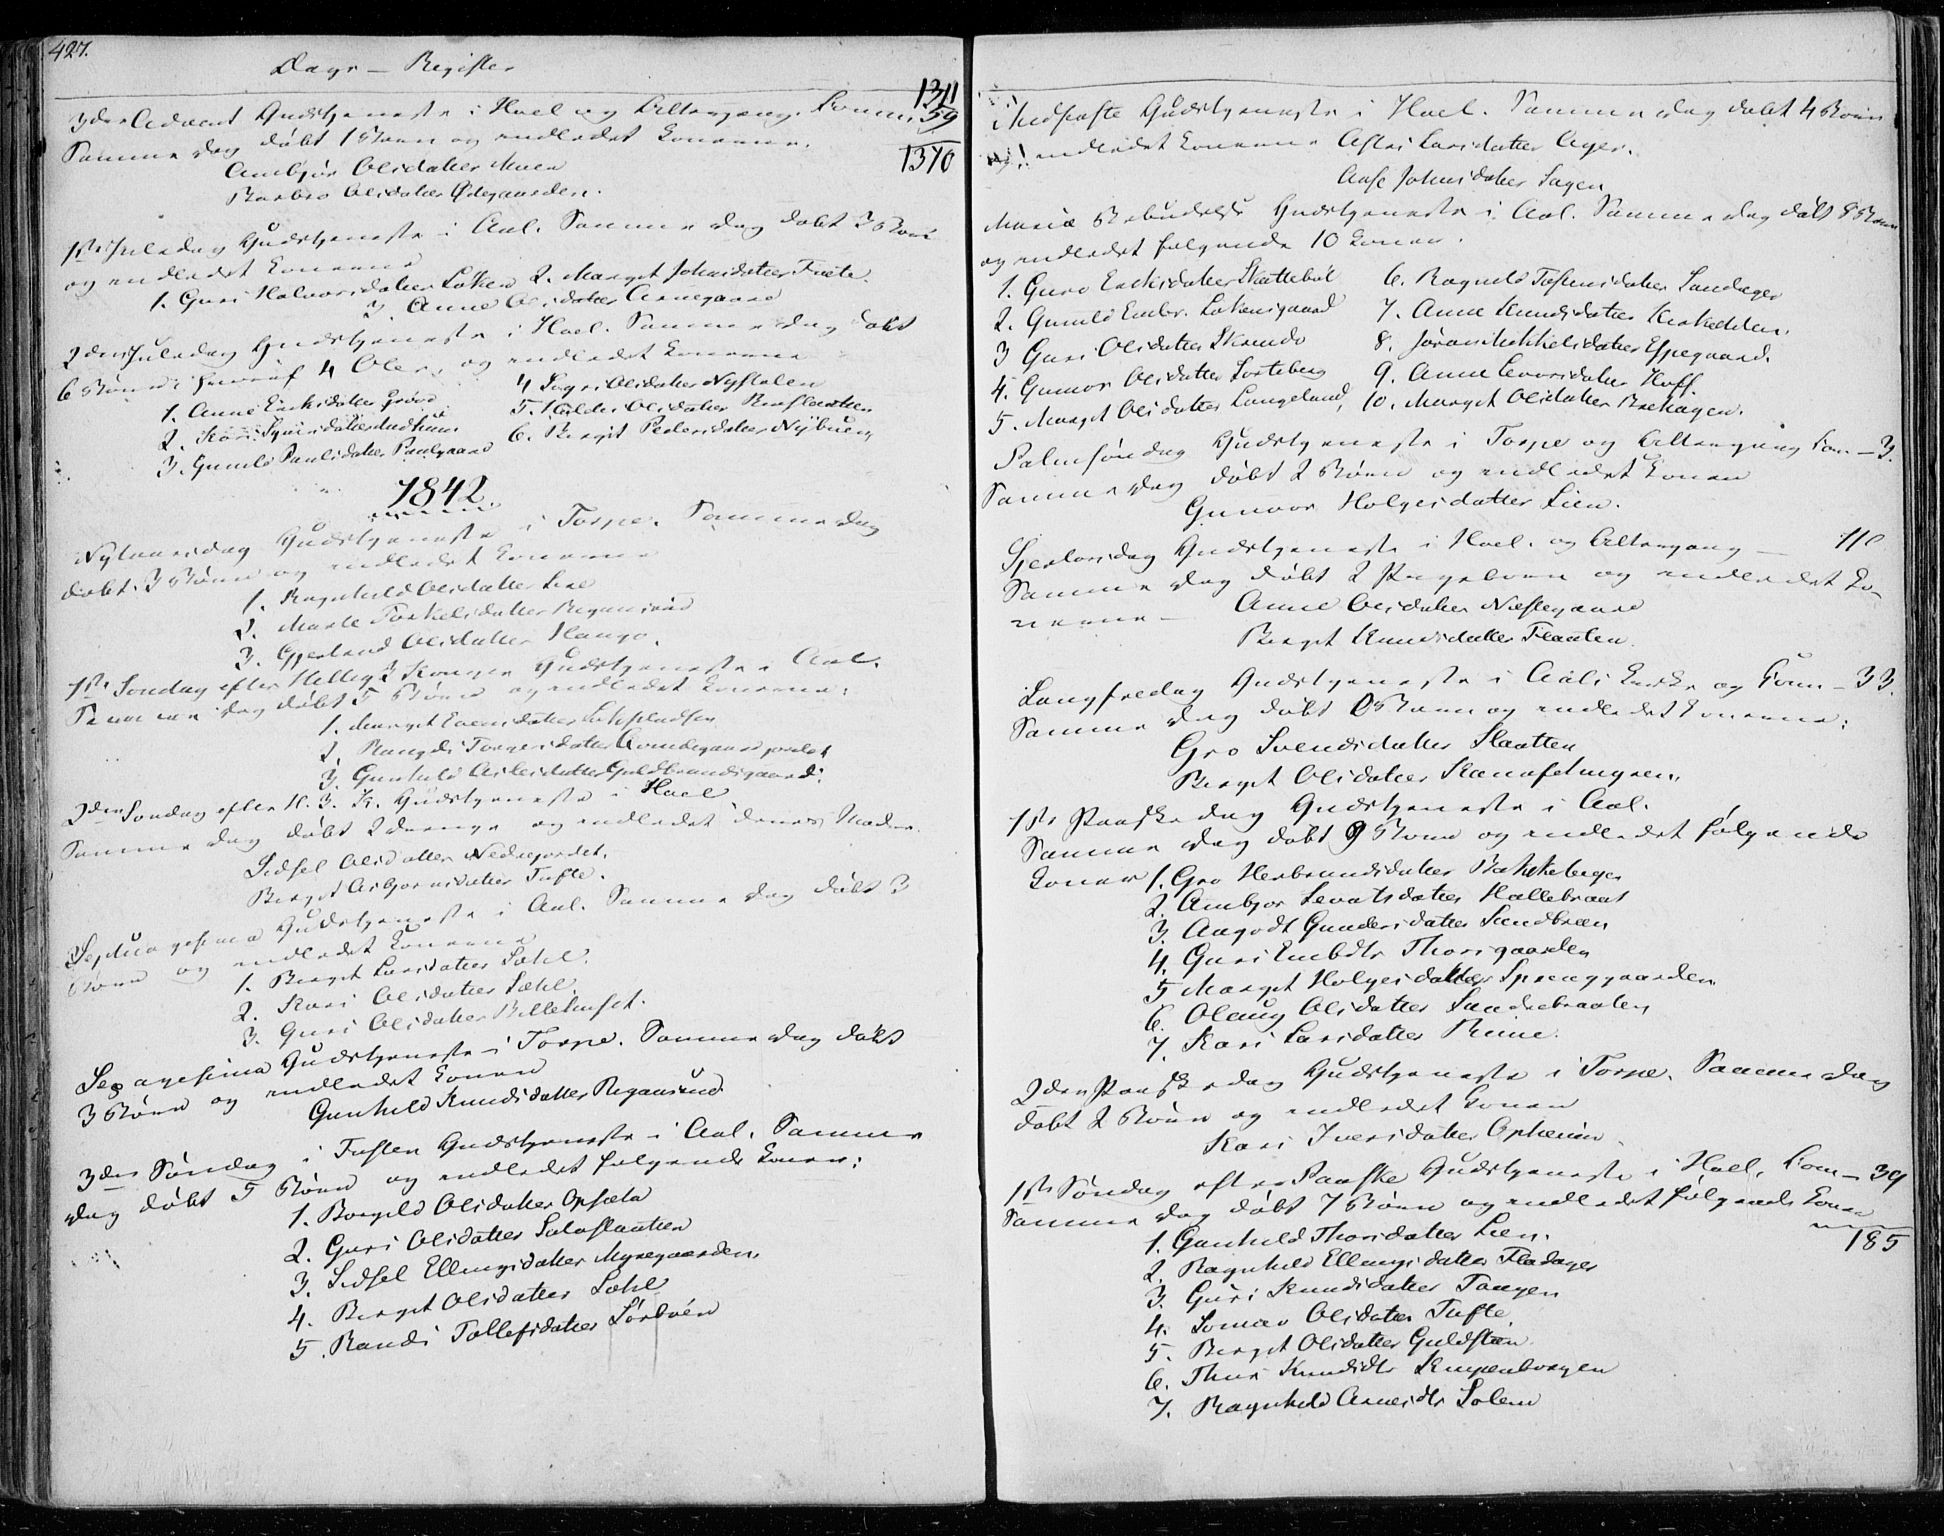 427.
Dags – Register
1311
3die Advent Gudstjeneste i Hoel og Altergang. Comm. 59
Samme dag døbt 1 Barn og indledet Konerne. 1370
Ambjør Olsdatter Moen
Barbro Olsdatter Ødegaarden.
1ste Juledag Gudstjeneste i Aal. Samme dag døbt 3 Børn
og indledet Konerne
1. Guri Halvorsdatter Løken 2. Marget Johnsdatter
3. Anne Arnegaard
2den Juledag Gudstjeneste i Hoel. Samme dag døbt
6 Børn heraf 4 Oler, og indledet Konerne
1. Anne Eriksdatter 4 Olsdatter Nystølen
2. Kari 5. Olsdatter
3. Gunild Paulsdatter Paulgaard 6. Berget Pedersdatter
1842
Nytaarsdag Gudstjeneste i Torpe. Samme dag
døbt 3 Børn og indledet Konerne
1. Ragnhild Olsdatter
2. Marte Torkelsdatter
3. Gjertrud Olsdatter Haugo.
1ste Søndag efter Hellig 3 Konger Gudstjeneste i Aal.
Samme dag døbt 5 Børn og indledet Konerne:
1. Marget
2. Rangdi
3. Gunhild Guldbrandsgaard.
2den Søndag efter H. 3. K. Gudstjeneste i Hoel
Samme dag døbt 2 Drenge og indledet deres Mødre
Sidsel Olsdatter Nedrejordet.
Berget Asbjørnsdatter Tufte.
Septuagesima Gudstjeneste i Aal. Samme dag døbt 3
Børn og indledet Konerne
1. Berget Larsdatter Sæhl.
2. Kari Olsdatter Sæhl.
3. Guri Olsdatter Billehuset.
Sexagesima Gudstjeneste i Torpe. Samme dag døbt
3 Børn og indledet Konen
Gunhild Knudsdatter
3die Søndag i Fasten Gudstjeneste i Aal. Samme
dag døbt 5 Børn og indledet følgende Koner:
1. Borgild Olsdatter Opsata
2. Guri Olsdatter
3. Sidsel Ellingsdatter Myregaarden.
4. Berget Olsdatter Sæhl
5. Randi Tollefsdatter
Midfaste Gudstjeneste i Hoel. Samme dag døbt 4 Børn
indledet Konerne Astri Larsdatter Ager.
Aase Johnsdatter Sagen
Mariæ Bebudelse Gudstjeneste i Aal. Samme dag døbt 8 Børn
og indledet følgende 10 Koner.
1. Guro Eriksdatter Skattebøl 6. Ragnild Sandager
2. Gunild Embr. 7. Anne Knudsdatter
3 Guri Olsdatter 8. Jøran Mikkelsdatter Espegaard.
4. Gunvor Olsdatter Sorteberg 9. Anne Hoff.
5. Marget Olsdatter Langeland, 10. Marget Olsdatter Brehagen.
Palmsøndag Gudstjeneste i Torpe og Altergang Com – 3.
Samme dag døbt 2 Børn og indledet Konen
Gunvor Holgersdatter Lien.
Skjertorsdag Gudstjeneste i Hoel. og Altergang – 110
Samme dag døbt 2 Pigebørn og indledet Ko-
nerne – Anne Olsdatter Nestegaard
Berget Knudsdatter Flaaten.
Langfredag Gudstjeneste i Aals Kirke og Com – 33.
Samme dag døbt 0 Børn og indledet Konerne:
Gro Svendsdatter Slaatten
Berget Olsdatter
1ste Paaskedag Gudstjeneste i Aal.
Samme dag døbt 9 Børn og indledet følgende
Koner 1. Gro Herbrandsdatter Bakkeberget
2. Ambjør Levatsdatter Hallebraat
3. Aagodt Gundersdatter
4. Guri Embdtr Thorsgaarden
5 Marget Holgersdatter Sprenggaarden
6. Olaug Olsdatter Sundrebraaten
7. Kari Larsdatter Rime.
2den Paaskedag Gudstjeneste i Torpe. Samme dag
døbt 2 Børn og indledet Konen
Kari Iversdatter Opheim
1ste Søndag efter Paaske Gudstjeneste i Hoel. Com – 39
Samme dag døbt 7 Børn og indledet følgende Koner
185
1. Gunhild Thorsdatter Lien.
2. Ragnhild Ellingsdatter Fladager
3. Guri Knudsdatter Tangen
4. Olsdatter Tufte.
5. Berget Olsdatter Guldsteen
6. Knudsdtr
7. Ragnhild Arnesdtr Solem